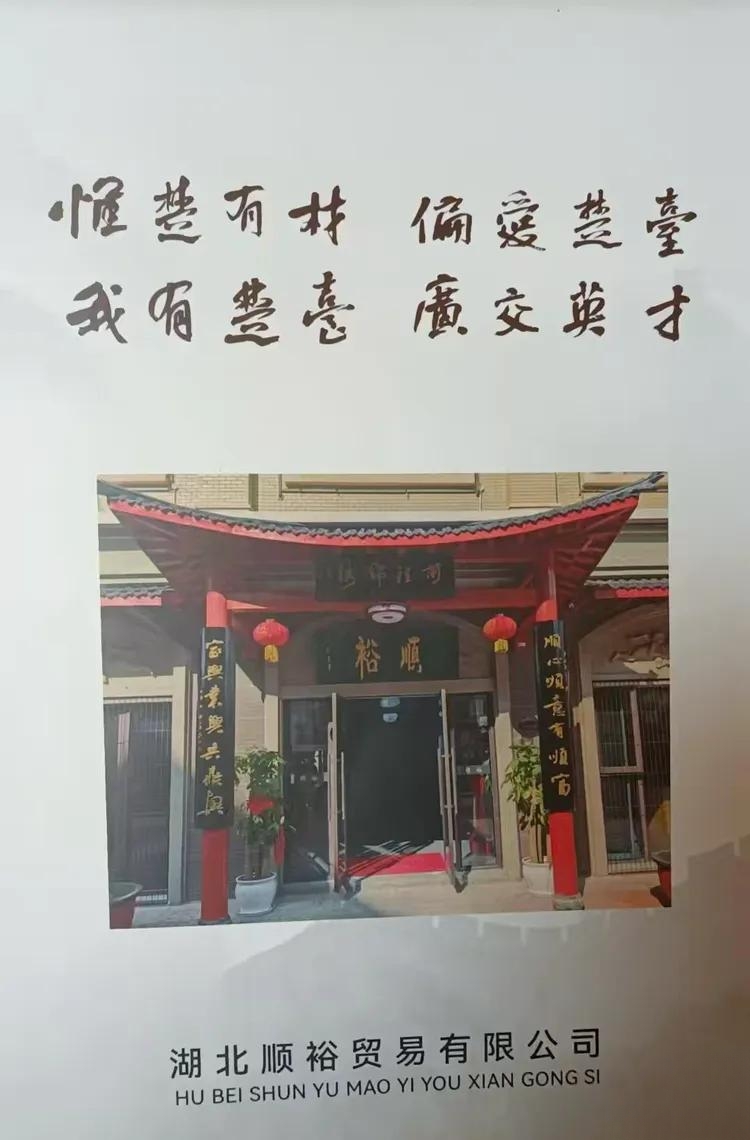 惟楚有材 偏愛楚臺
我有楚臺 廣交英才
順裕
順心順意有順富
家興業興共鼎興
湖北顺裕贸易有限公司
HU BEI SHUN YU MAO YI YOU XIAN GONG SI